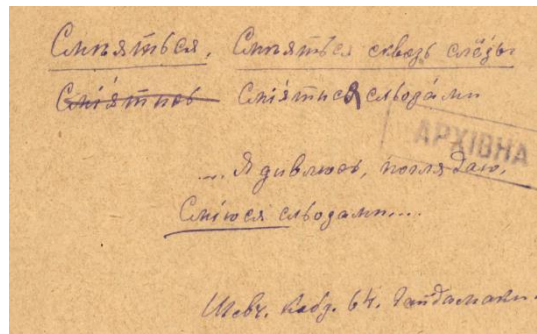 Смѣяться. Смѣяться сквозь слёзы
Сміятись Сміятися сльозами
АРХІВНА
... Я дивлюсь, поглядаю,
Сміюся сльозами....
Шевч. Кобз. 64. Гайдамаки.